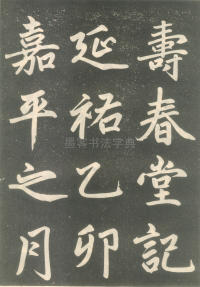 壽春堂記
延祐乙卯
嘉平之月
墨客书法字典